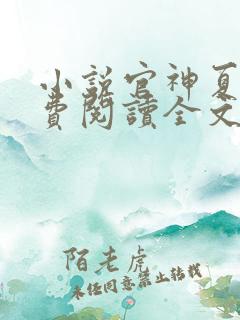 小説官神夏
費閱讀全文
陌老虎
未经同意禁止转载